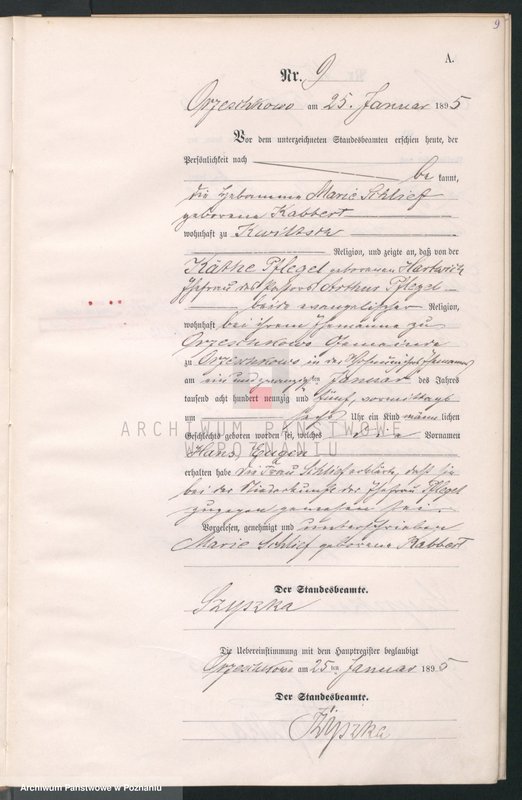 9
A.
Nr. 9
Orzeschkowo am 25. Januar 1895
Vor dem unterzeichneten Standesbeamten erschien heute, der
Persönlichkeit nach
be kannt,
die Hebamme Marie Schlief
geborene Kabbert
wohnhaft zu Kwiltsch
Religion, und zeigte an, daß von der
Käthe Pflegel geborenen Hartwich
Ehefrau des Pastors Arthur Pflegel
beide evangelischer Religion,
wohnhaft bei ihrem Ehemanne zu
Orzeschkowo
zu Orzeschkowo in der Ehemannes
am ein und zwanzigsten Januar des Jahres
tausend acht hundert neunzig und fünf, vormittags
um sechs Uhr ein Kind männlichen
Geschlechts geboren worden sei, welches die Vornamen
Hans Eugen
erhalten habe Die Frau Schlief erklärte, daß sie
bei der Niederkunft der Ehefrau Pflegel
zugegen gewesen sei.
Vorgelesen, genehmigt und unterschrieben
Marie Schlief geborene Kabbert
Der Standesbeamte.
Szyszka
Die Uebereinstimmung mit dem Hauptregister beglaubigt
Orzeschkowo am 25 ten Januar 1895
Der Standesbeamte.
Szyszka
ARCHIWUM PAŃSTWOWE
W POZNANIU
Archiwum Państwowe w Poznaniu